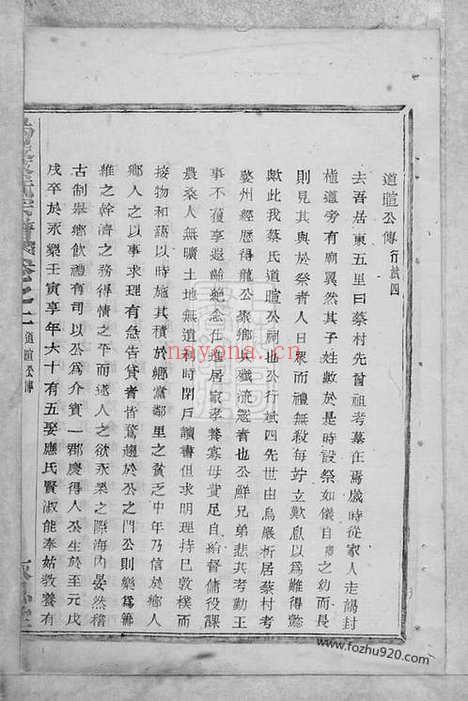 道暄公傳 行斌四
去吾居東五里曰蔡村先曾祖考墓在焉歲時從家人走謁封
植道旁有廟翼然其子姓數於是時設祭如儀自庚之幼而長
則見其與於祭者人日衆而禮無殺每竚立歎息以爲是何德
歟此我蔡氏道暄公祠也公行斌四先世由烏嚴析居蔡村考
婺州經歷得龍公彖鄉與殲流寇者也公鮮兄弟悲其考勤王
事不獲還齡絶念仕進居家孝養寡母費足自給督傭役課
農桑人無曠土地無遺利時閉戶讀書但求明理持巳敦樸而
接物和語以時務其積於鄉黨鄰里之貧乏中年乃信於鄉人
鄉人之以事求理有急告貸者皆驚趨於公之門公則樂爲籌
維之幹濟之務得情之平而遂人之欲永樂之際海內晏然稽
古制舉鄉飲禮有司以公爲介賓一郡慶得人公生於至元戊
戌卒於永樂壬寅享年六十有五娶應氏賢淑能奉姑教養有
卷之二 道暄公傳
nayona.cn
www.fozhu920.com